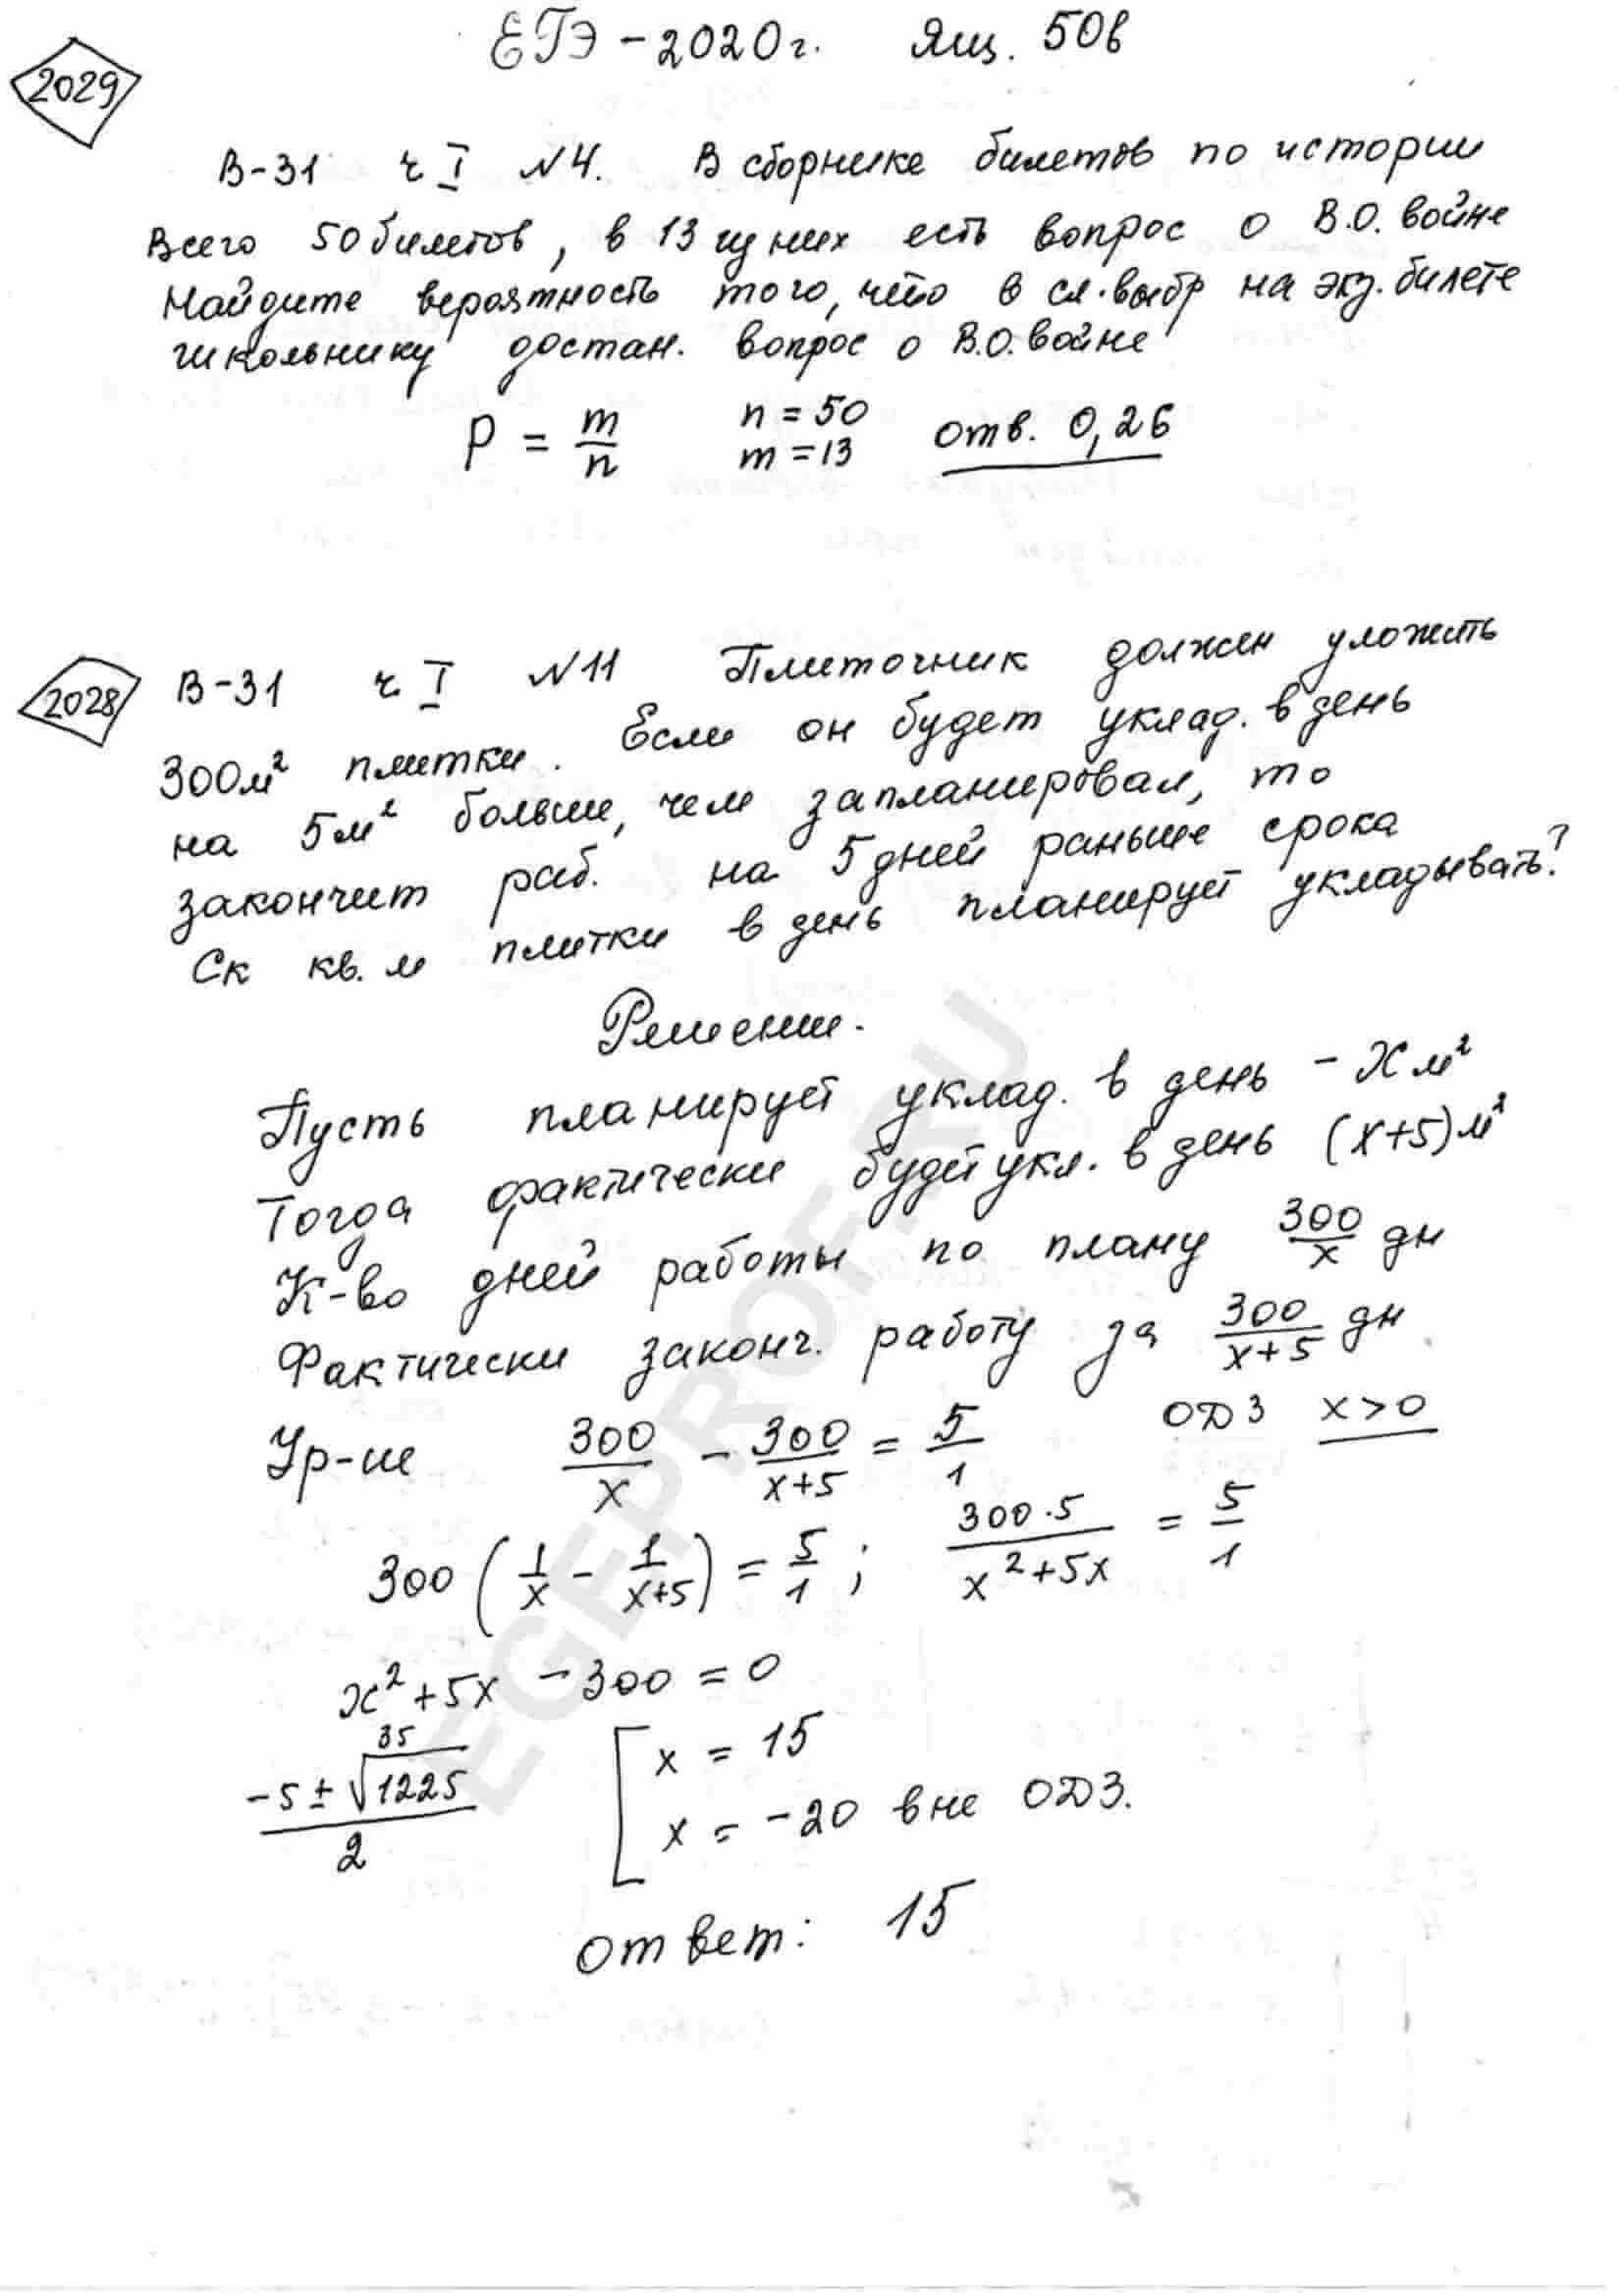 ЕГЭ - 2020г. Ящ. 50в
2029
В-31 ч I №4. В сборнике билетов по истории
Всего 50 билетов, в 13 из них есть вопрос о В.О. войне
Найдите вероятность того, что в сл. выбр на экз. билете
школьнику достан. вопрос о В.О. войне
P = m/n n = 50 отв. 0,26
m = 13
2028 В-31 ч I №11 Плиточник должен уложить
300м² плитки. Если он будет уклад. в день
на 5м² больше, чем запланировал, то
закончит раб. на 5 дней раньше срока
Ск кв. м плитки в день планирует укладывать?
Решение.
Пусть планирует уклад. в день - x м²
Тогда фактически будет укл. в день (x+5) м²
К-во дней работы по плану 300/x дн
Фактически законч. работу за 300/(x+5) дн
Ур-ие 300/x - 300/(x+5) = 5/1 ОДЗ x > 0
300 (1/x - 1/(x+5)) = 5/1 ; 300·5/(x²+5x) = 5/1
x² + 5x - 300 = 0
35
(-5 ± √1225)/2 [ x = 15
x = -20 вне ОДЗ.
ответ: 15
EGEPROF.RU